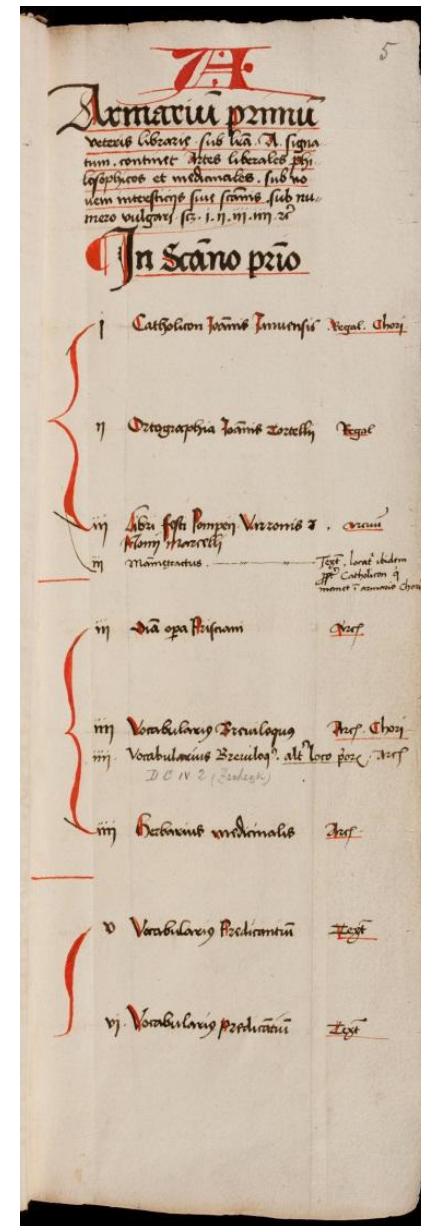 A
5
Armariū primū
veteris librarie sub lrā. A. signa-
tum. continet Artes liberales phi-
losophicos et medicinales. sub no-
uem intersticijs siue scānis sub nu-
mero vulgari. scz. i. ii. iii. iiii. rc̄
In Scāno prīo
i Catholicon Joānnis Januensis Regal. Chori
ii Ortographia Joānnis Tortellij Regal
iii Libri festi Pompeij. Varronis et
Nonij Marcelli
iii Māmotractus. Text. locatʳ ibidem
Catholicon q̇
manet ī armario Chori
iii opera Prisciani Arcʰ
iiii Vocabularius Breuiloquus Arcʰ. Chori
iiii. Vocabularius Breuiloqꝰ. altʳ loco Arcʰ
D C IV 2
iiii Herbarius medicinalis Arcʰ
v Vocabulariꝰ Predicantiū Text
vi. Vocabulariꝰ predicātiū Text